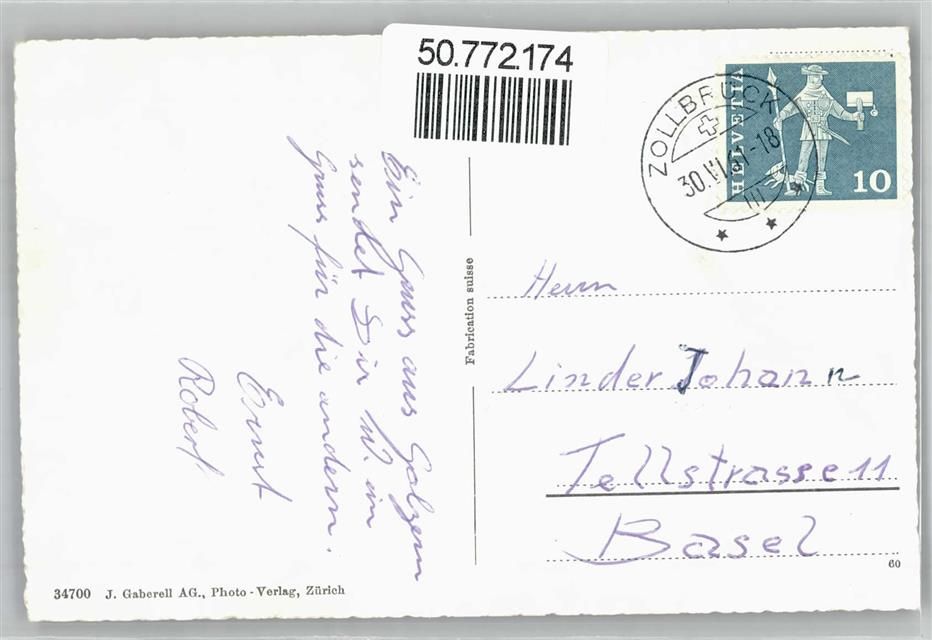 50.772.174
ZOLLBRÜCK
30.VI.61-18
HELVETIA
10
Ein Gruss aus Golzern
sendet Dir
Gruss für die andern.
Ernst
Robert
Fabrication suisse
Herrn
Linder Johann
Tellstrasse 11
Basel
60
34700 J. Gaberell AG., Photo-Verlag, Zürich